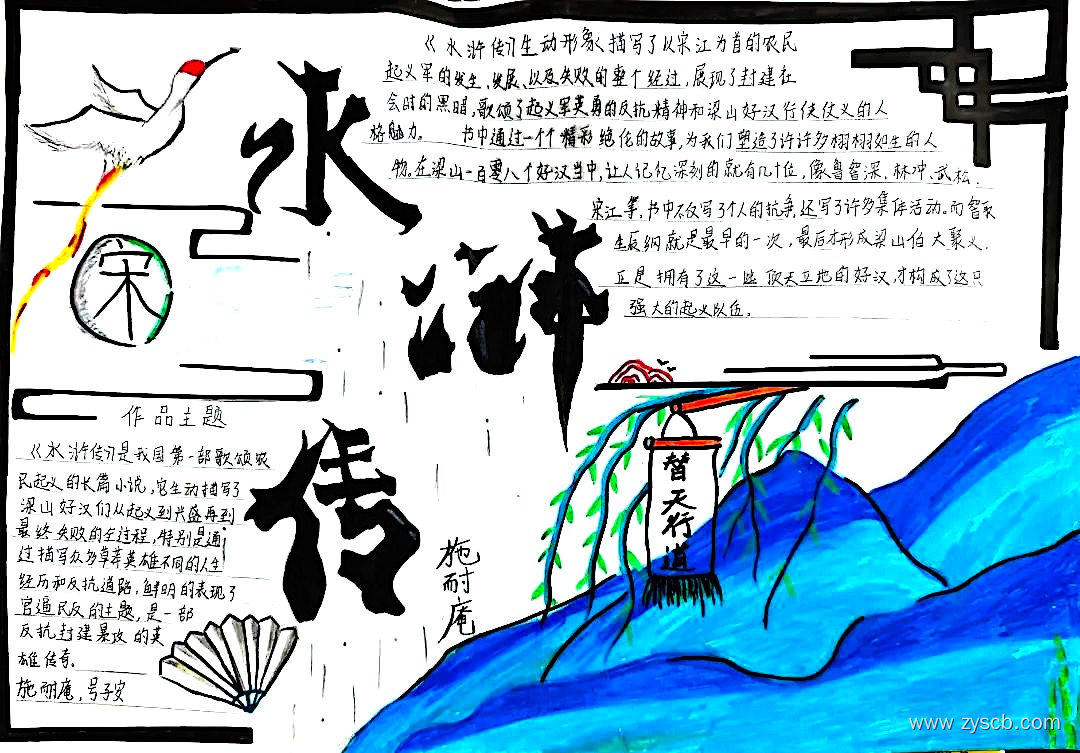 《水浒传》生动形象描写了以宋江为首的农民
起义军的发生、发展、以及失败的整个经过，展现了封建社
会时的黑暗，歌颂了起义军英勇的反抗精神和梁山好汉行侠仗义的人
格魅力。 书中通过一个个精彩绝伦的故事，为我们塑造了许许多多栩栩如生的人
物。在梁山一百零八个好汉当中，让人记忆深刻的就有几十位，像鲁智深、林冲、武松、
宋江等，书中不仅写了个人的抗争，还写了许多集体活动。而智取
生辰纲就是最早的一次，最后才形成梁山伯大聚义。
正是拥有了这一批顶天立地的好汉，才构成了这只
强大的起义队伍。
水
浒
传
宋
作品主题
《水浒传》是我国第一部歌颂农
民起义的长篇小说，它生动描写了
梁山好汉们从起义到兴盛再到
最终失败的全过程，特别是通
过描写众多草莽英雄不同的人生
经历和反抗道路，鲜明的表现了
官逼民反的主题，是一部
反抗封建暴政的英
雄传奇。
施耐庵，号子安
施耐庵
替天行道
www.zyscb.com